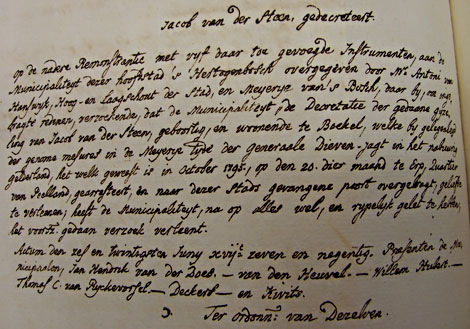 Jacob van der Steen, gedecreteert.
op de nadere Remonstrantie met vyf daar toe gevoegde Instrumenten, aan de
Municipaliteyt dezer hoofdstad 's Hertogenbosch overgegeven door Mr. Antoni van
Hanswyk, Hoog- en Laagschout der Stad, en Meyerye van 's Bosch, daar by, om inge-
bragte rednen, verzoekende, dat de Municipaliteyt, de Decretatie der gedaane
ling van Jacob van der Steen, geboortig, en woonende te Boekel, welke by gelegenheid
der genome mesures in de Meyerye tyde der generaale Dieven-jagt in het nahuurig
Gelderland, het welk geweest is in October 1795, op den 20. dier maand te Erp, Quartier
van Peelland, gearresteert, en naar dezer Stads gevangene poort overgebragt, gelieft
te verleenen; heeft de Municipaliteyt, na op alles wel, en rypelyk gelet te hebben,
het voorsz. gedaan verzoek verleent.
Actum den zes en twintigsten Juny xvijc zeven en negentig. Presenten de Mu-
nicipaalen, Jan Hendrik van der Does. — van den Heuvel. — Willem Hubert —
Thomas C. van Ryckevorsel. — Deckers — en Kivits.
Ter ordonn: van Dezelven.